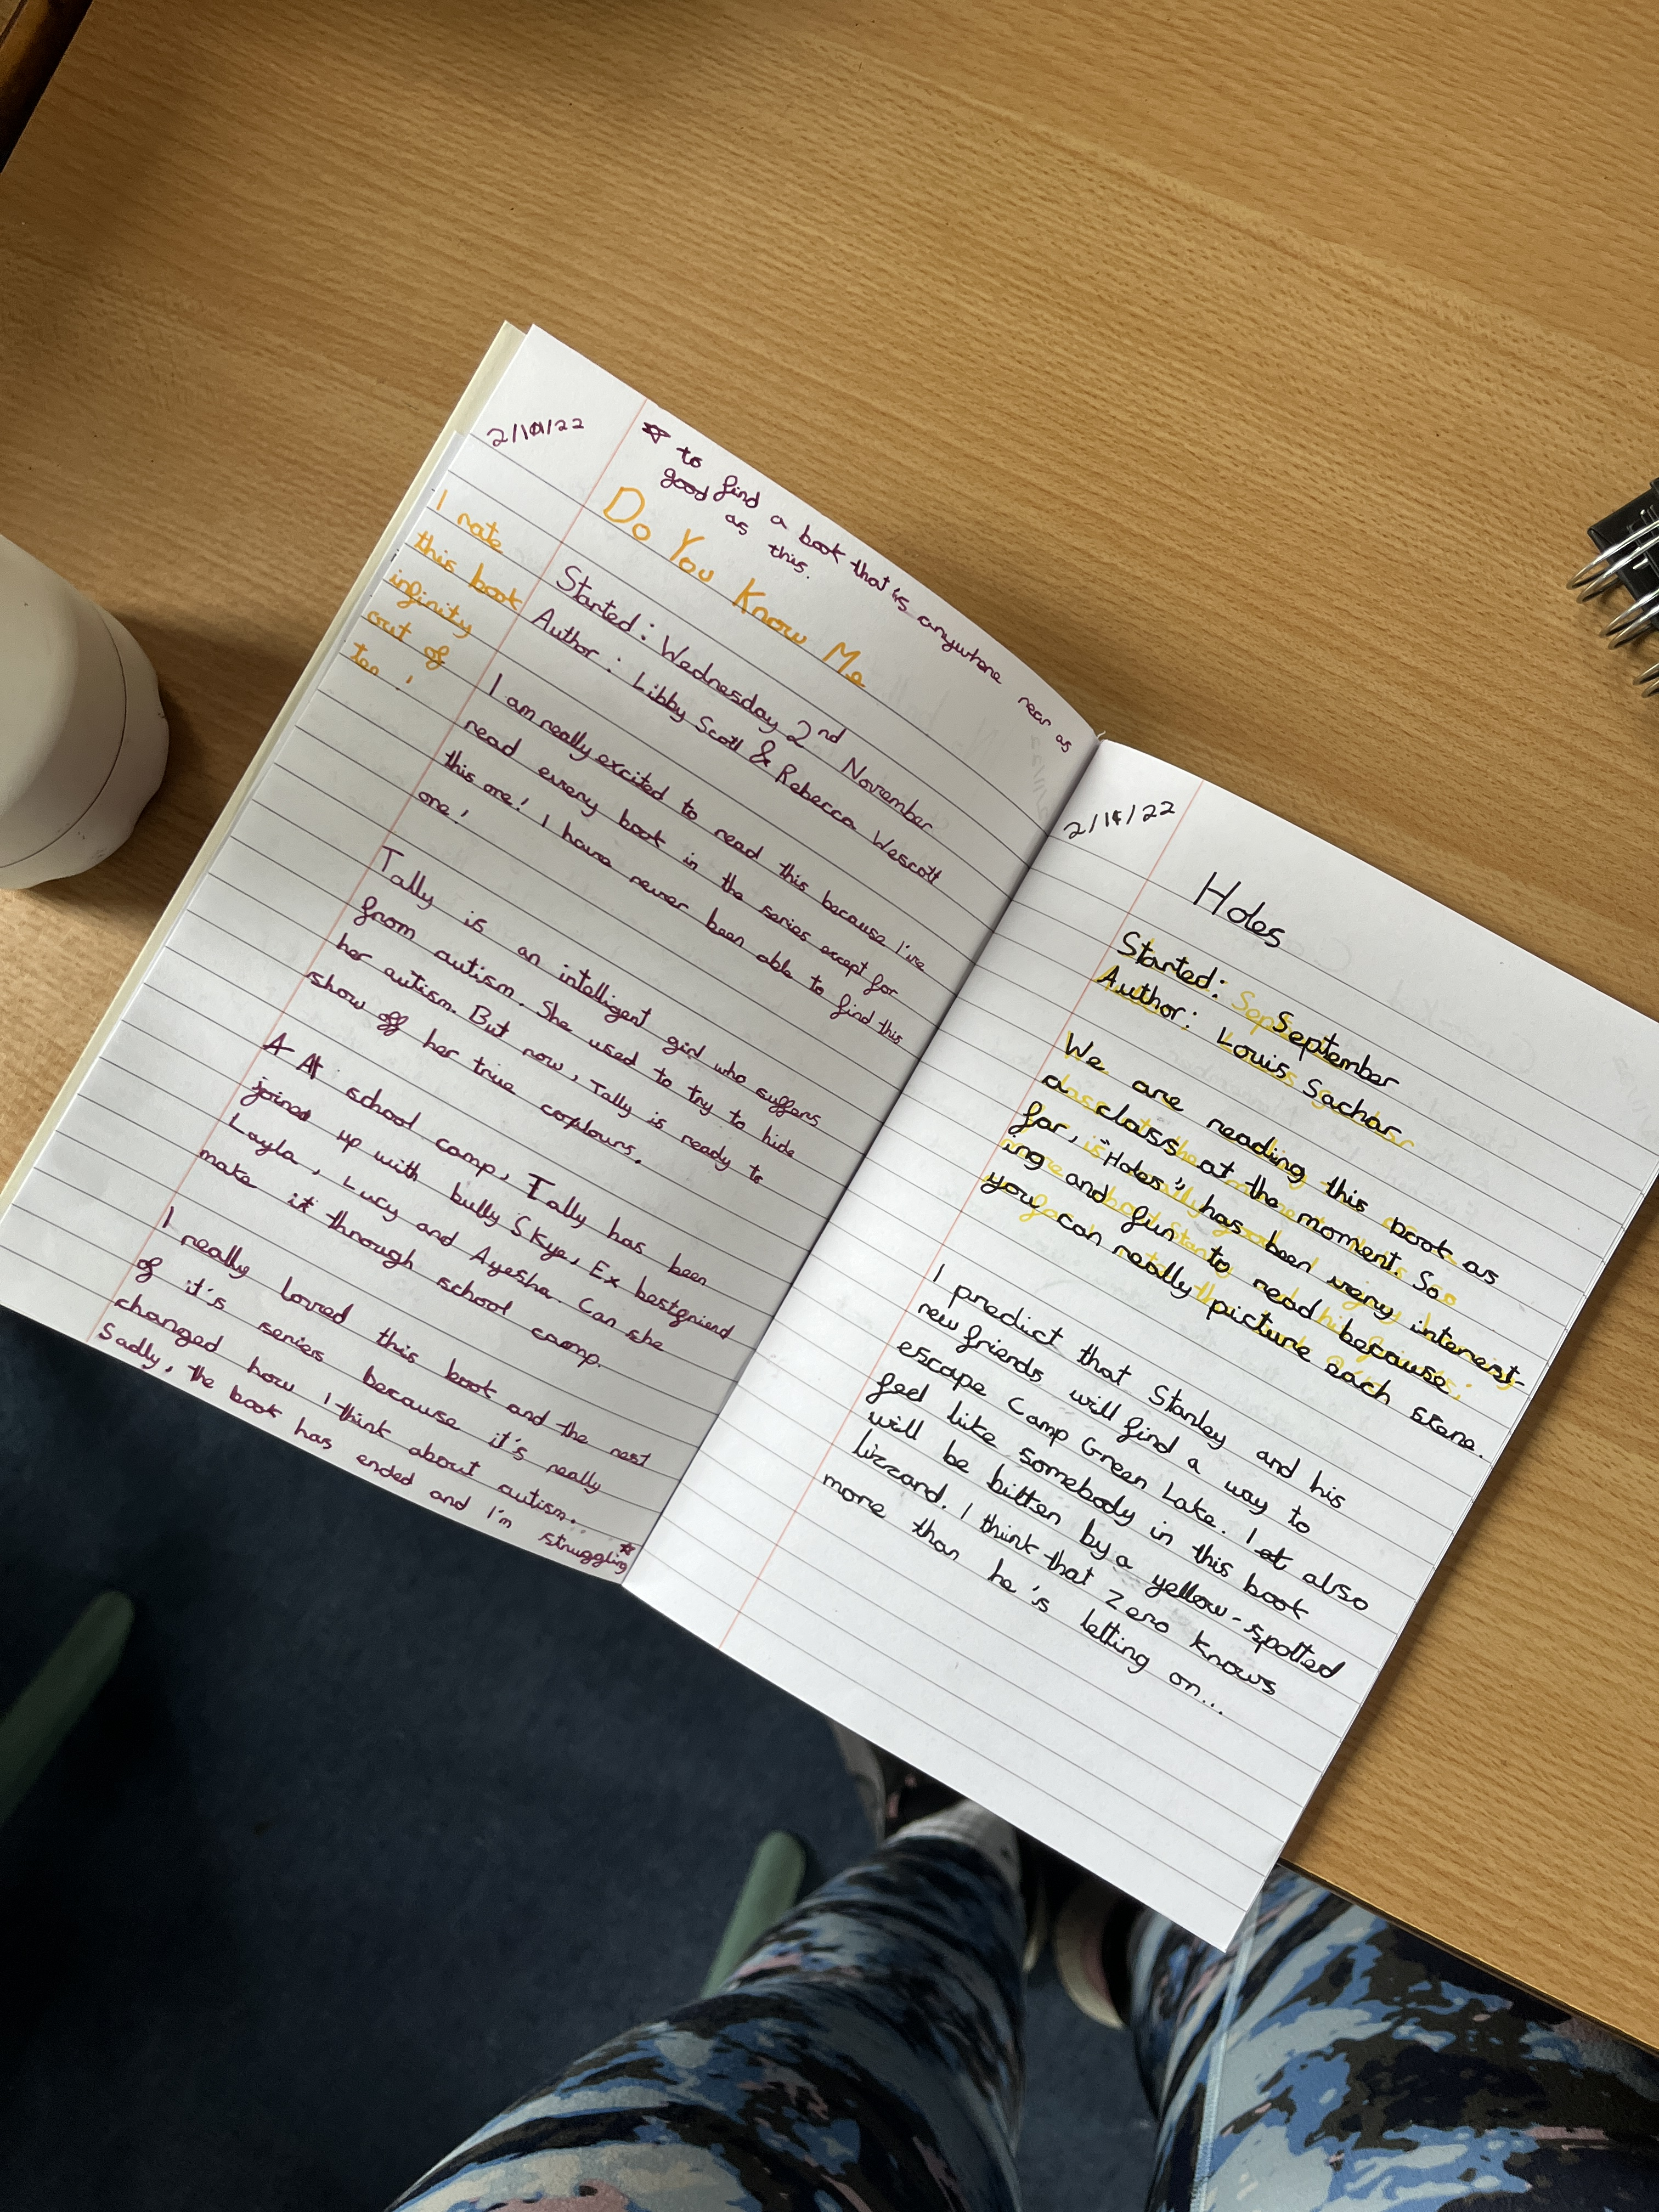 2/11/22
☆ to find a book that's anywhere near as
good as this.
Do You Know Me
I rate
this book
infinity
out of
ten!
Started: Wednesday 2nd November
Author: Libby Scott & Rebecca Wescott
I am really excited to read this because I've
read every book in the series except for
this one! I have never been able to find this
one!
Tally is an intelligent girl who suffers
from autism. She used to try to hide
her autism. But now, Tally is ready to
show off her true coplours.
A At school camp, Tally has been
joined up with bully Skye, Ex bestfriend
Layla, Lucy and Ayesha. Can she
make it through school camp.
I really loved this book and the rest
of it's series because it's really
changed how I think about autism.
Sadly, the book has ended and I'm struggling ☆
2/11/22
Holes
Started: September
Author: Louis Sachar
We are reading this book as
a class at the moment. So
far, "Holes" has been very interest-
ing and fun to read because
you can really picture each scene.
I predict that Stanley and his
new friends will find a way to
escape Camp Green Lake. I at also
feel like somebody in this book
will be bitten by a yellow-spotted
lizzard. I think that Zero knows
more than he's letting on...